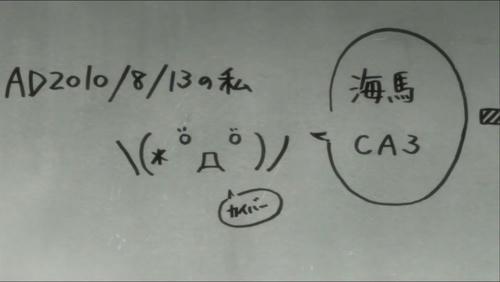 AD2010/8/13の私
海馬
CA3
\(*ﾟДﾟ)/
カイバー